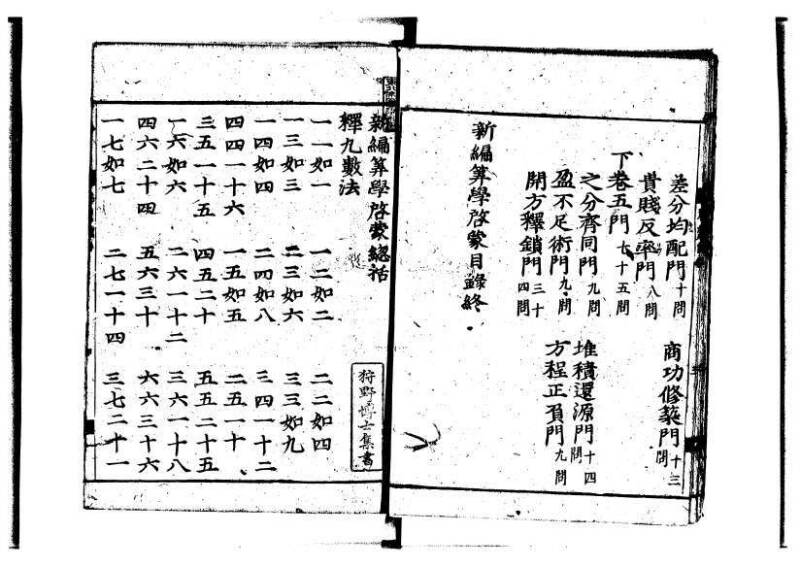 差分均配門十問 商功修築門十三問
貴賤反率門八問
下卷五門七十五問
之分齊同門九問 堆積還源門十四問
盈不足術門九問 方程正負門九問
開方釋鎖門三十四問
新編算學啓蒙目錄終
新編算學啓蒙總括
釋九數法
狩野博士集書
一一如一 一二如二 二二如四
一三如三 二三如六 三三如九
一四如四 二四如八 三四一十二
四四一十六 一五如五 二五一十
三五一十五 四五二十 五五二十五
一六如六 二六一十二 三六一十八
四六二十四 五六三十 六六三十六
一七如七 二七一十四 三七二十一